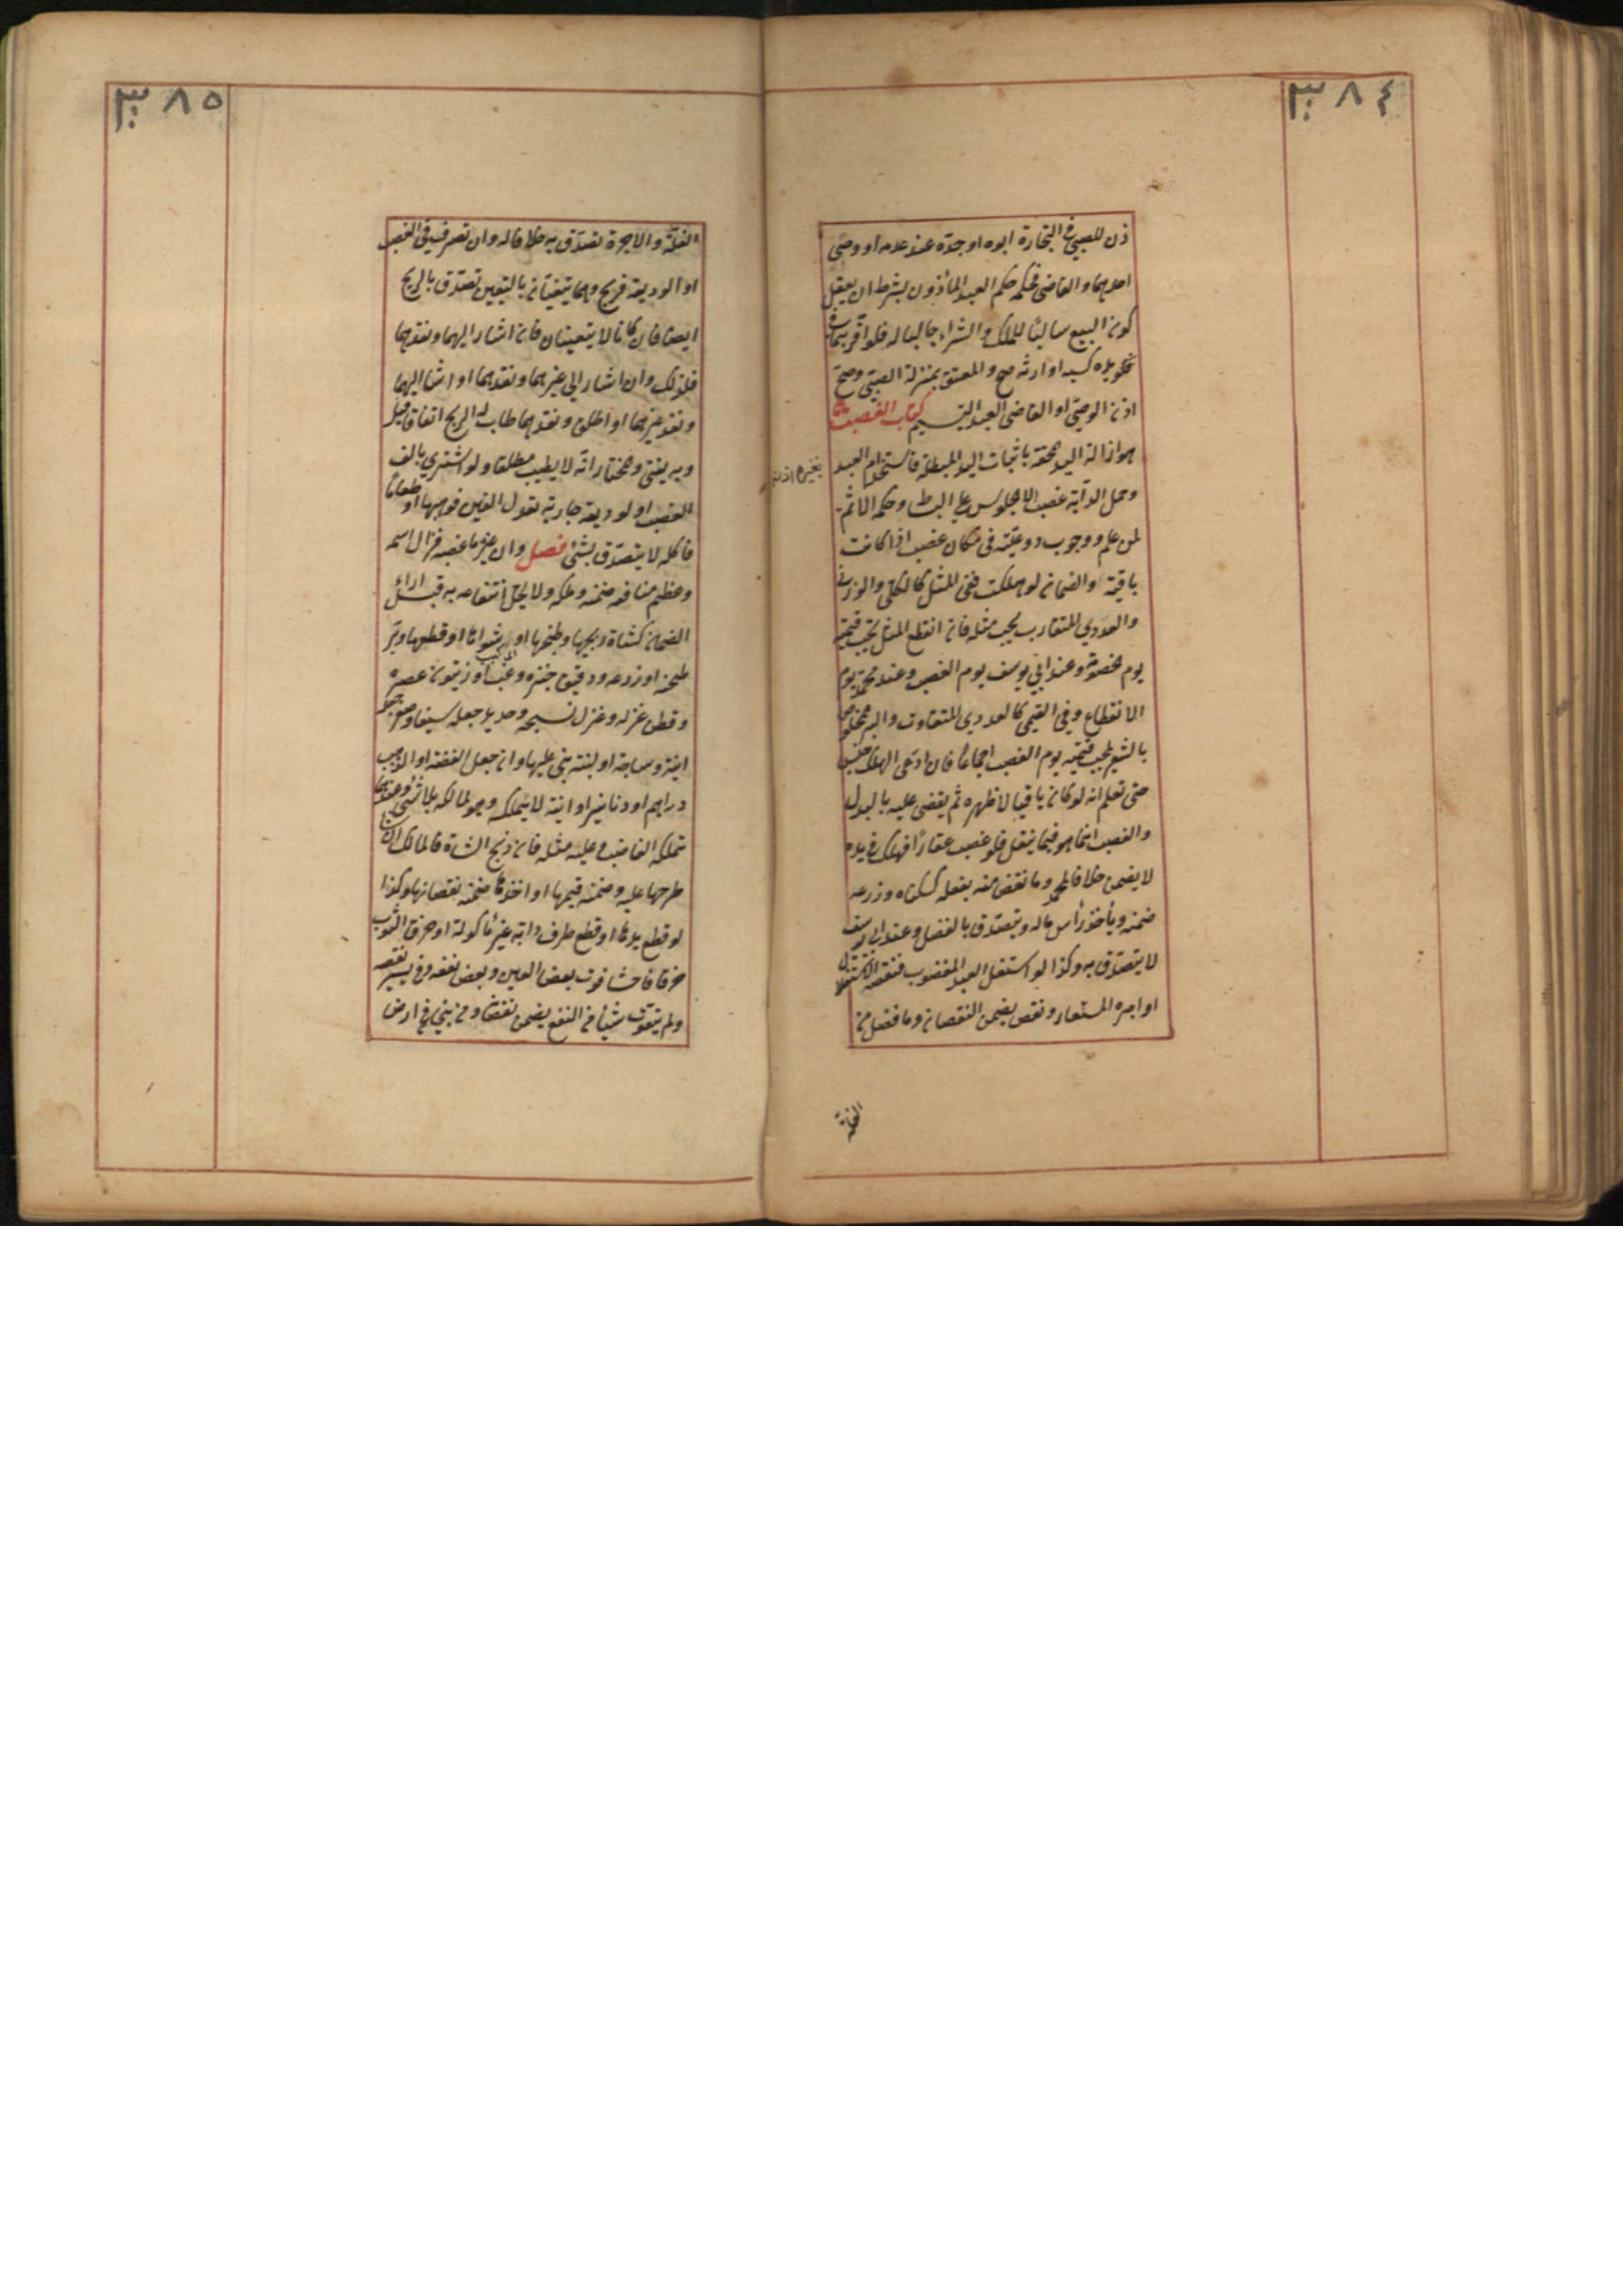 ٣٨٤
ذن للصبي في التجارة ابوه او جده عند عدمه او وصي
احدهما والقاضي فحكمه حكم العبد المأذون بشرط ان يعقل
كون البيع سالبا للملك والشراء جالبا له فلو اقر بما في
يده كسبه او ارثه صح والمعتوه بمنزلة الصبي وصح
اذن الوصي او القاضي لعبد اليتيم كتاب الغصب
هو ازالة اليد المحقة باثبات اليد المبطلة فاستخدام العبد
بغير اذنه
وحمل الدابة غصب لا الجلوس على البساط وحكمه الاثم
لمن علم ووجوب رد عينه في مكان غصبه اذا كانت
باقية والضمان لو هلكت ففي المثلي كالكيلي والوزني
والعددي المتقارب يجب مثله فان انقطع المثل يجب قيمته
يوم الخصومة وعند ابي يوسف يوم الغصب وعند محمد يوم
الانقطاع وفي القيمي كالعددي المتفاوت والبر المخلوط
بالشعير يجب قيمته يوم الغصب اجماعا فان ادعى الهلاك حبس
حتى تعلم انه لو كان باقيا لاظهره ثم يقضى عليه بالبدل
والغصب انما هو فيما ينقل فلو غصب عقارا فهلك في يده
لا يضمن خلافا لمحمد وما نقص منه بفعله كسكناه وزرعه
ضمنه ويأخذ رأس ماله ويتصدق بالفضل وعند ابي يوسف
لا يتصدق به وكذا لو استغل العبد المغصوب فنقصه الاستغلال
او اجره المستعار ونقص يضمن النقصان وما فضل من
الغلة
٣٨٥
الغلة والاجرة تصدق به خلافا له وان تصرف في الغصب
او الوديعة فربح وهما يتعينان بالتعيين تصدق بالربح
ايضا فان كانا لا يتعينان فان اشار اليهما ونقدهما
فكذلك وان اشار الى غيرهما ونقدهما او اشار اليهما
ونقد غيرهما او اطلق ونقدهما طاب له الربح اتفاقا قيل
وبه يفتى والمختار انه لا يطيب مطلقا ولو اشترى بالف
الغصب او لوديعة جارية تعدل الفين فوهبها او طعاما
فاكله لا يتصدق بشئ فصل وان غير ما غصبه فزال اسمه
وعظم منافعه ضمنه وملكه ولا يحل انتفاعه به قبل اداء
الضمان كشاة ذبحها وطبخها او شواها او قطعها وبر
طحنه او زرعه ودقيق خبزه وعنب او زيتون عصره
وقطن غزله وغزل نسجه وحديد جعله سيفا وصفر جعله
انية وساجة او لبنة بنى عليها وان جعل الفضة او الذهب
دراهم او دنانير او انية لا يملكه وهو لمالكه بلا شئ وعندهما
تملكه الغاصب وعليه مثله فان ذبح الشاة فالمالك ان شاء
طرحها عليه وضمنه قيمتها او اخذها ضمنه نقصانها وكذا
لو قطع يدها او قطع طرف دابة غير مأكولة او خرق الثوب
خرقا فاحشا فوت بعض العين وبعض نفعه وفي يسير نقصه
ولم يتفوت شيأ من النفع يضمن نقصانه ومن بنى في ارض